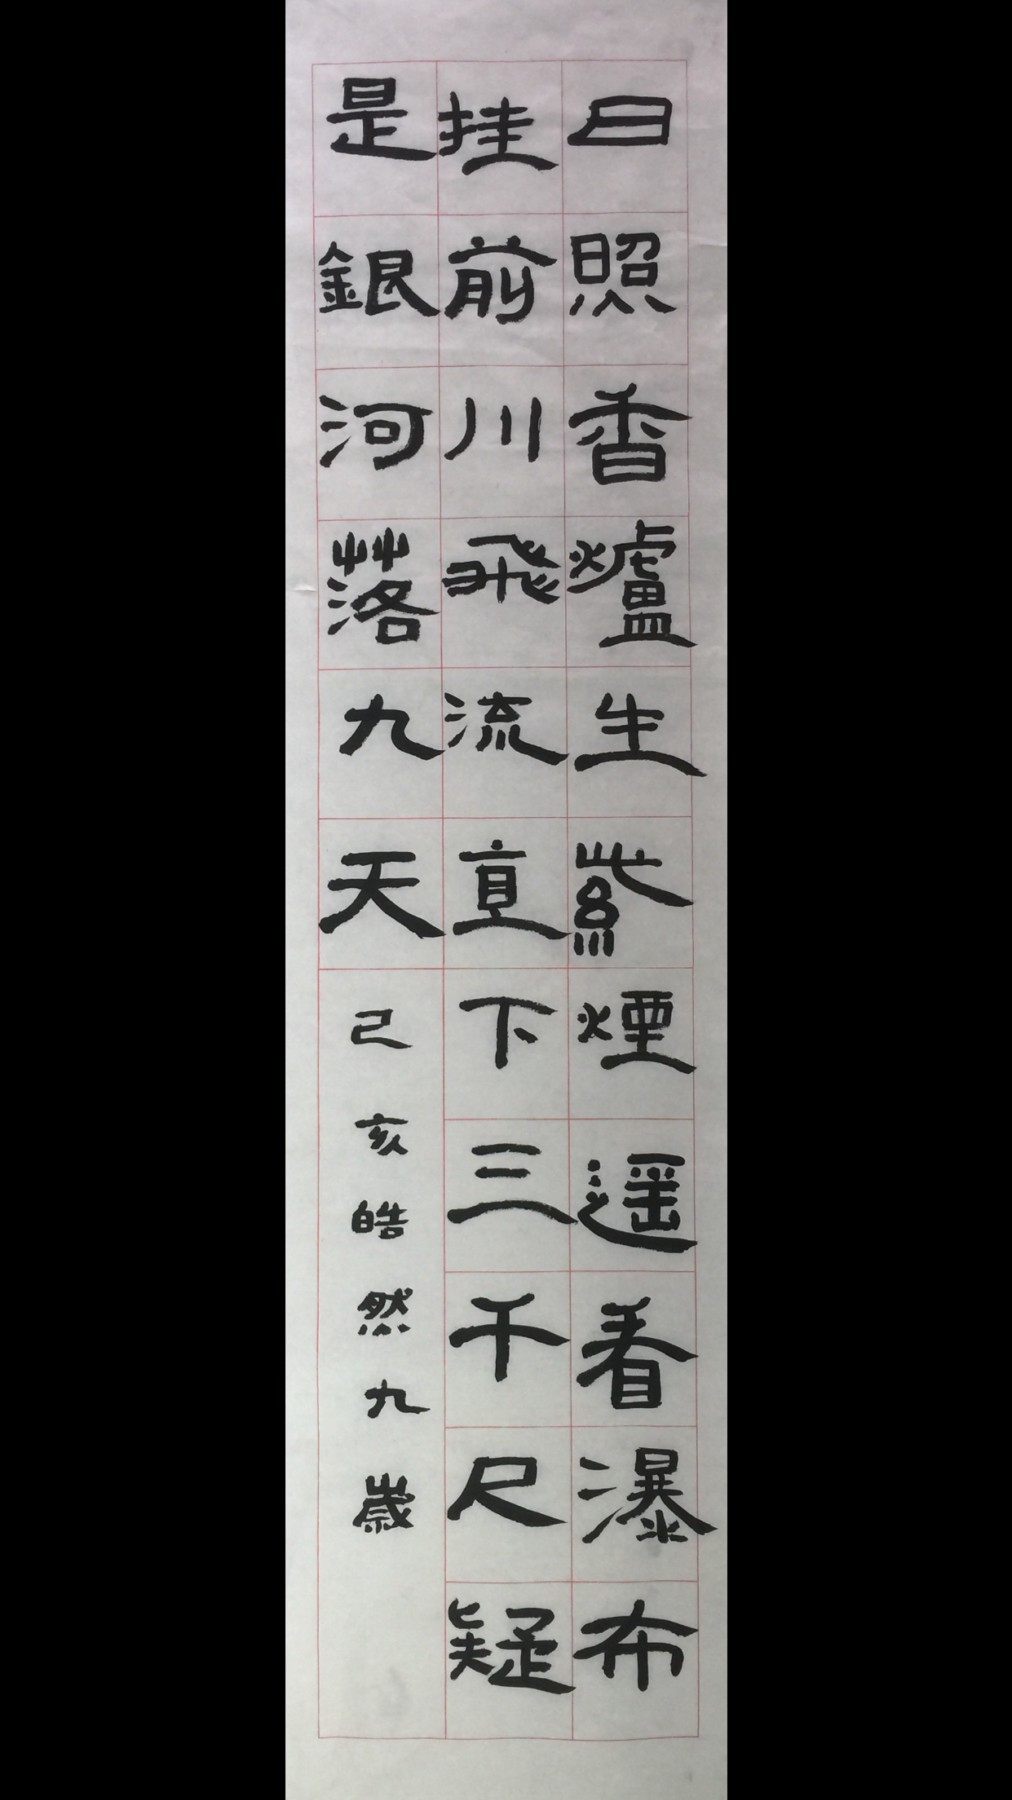 日照香爐生紫煙遥看瀑布
挂前川飛流直下三千尺疑
是銀河落九天
己亥皓然九歲